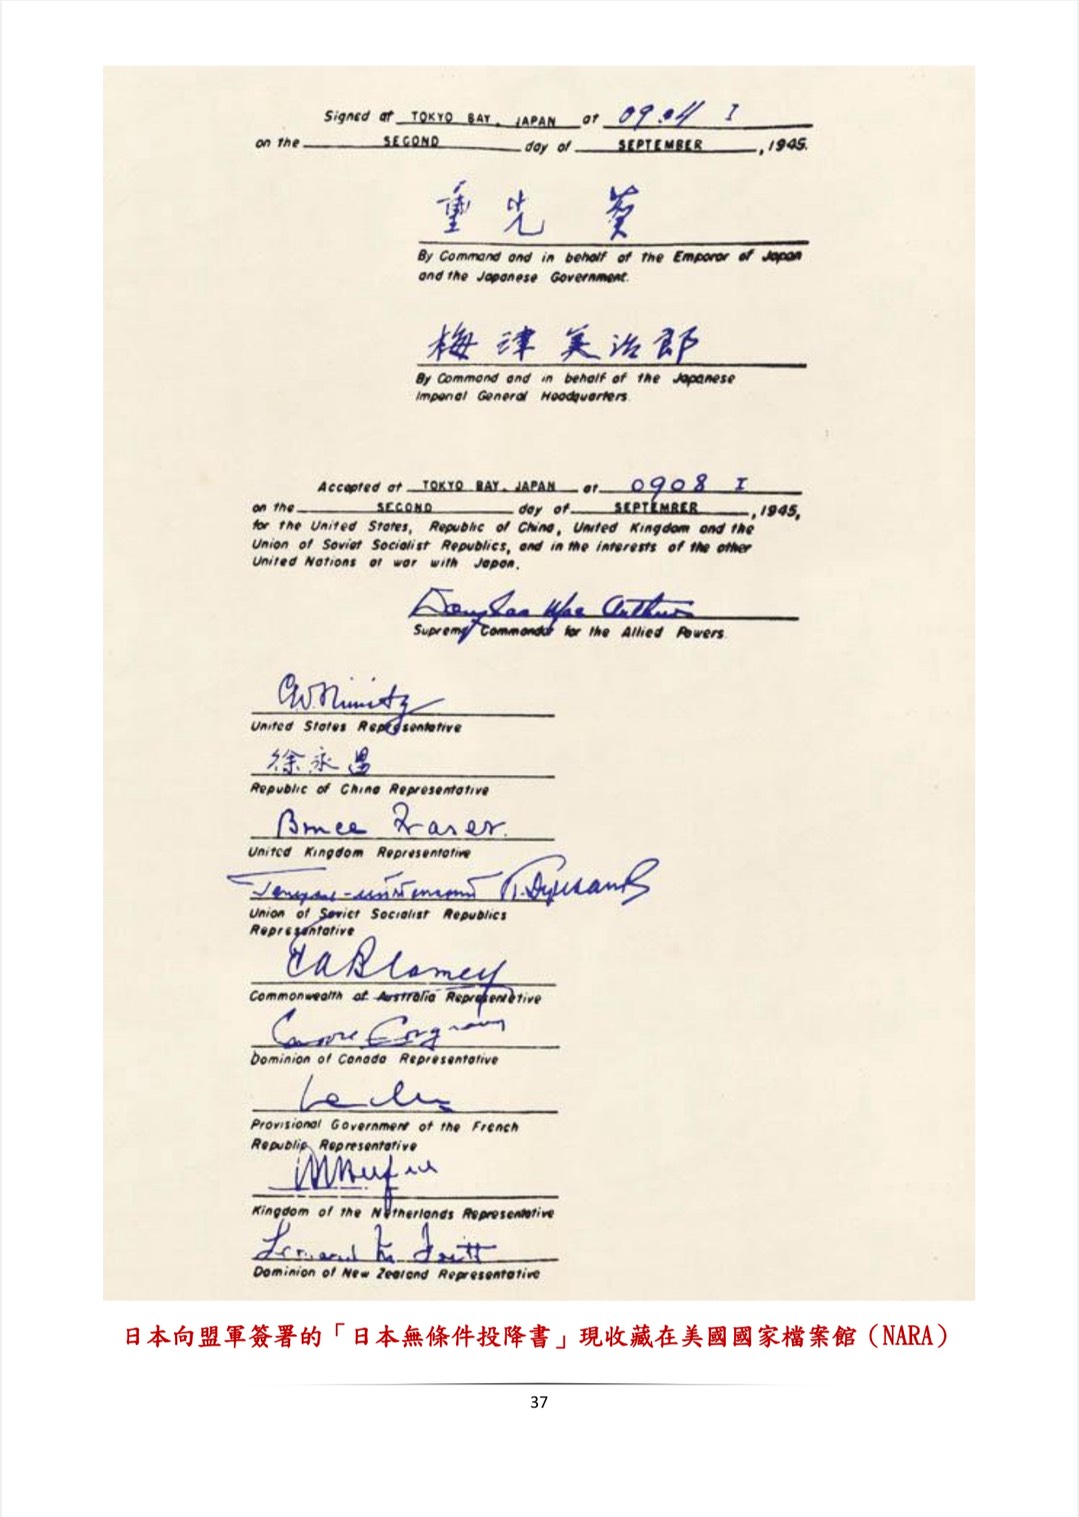 Signed at TOKYO BAY, JAPAN at 09.04 I
on the SECOND day of SEPTEMBER, 1945.
重光 葵
By Command and in behalf of the Emperor of Japan
and the Japanese Government.
梅津美治郎
By Command and in behalf of the Japanese
Imperial General Headquarters.
Accepted at TOKYO BAY, JAPAN at 0908 I
on the SECOND day of SEPTEMBER, 1945,
for the United States, Republic of China, United Kingdom and the
Union of Soviet Socialist Republics, and in the interests of the other
United Nations at war with Japan.
Douglas MacArthur
Supreme Commander for the Allied Powers.
C.W. Nimitz
United States Representative
徐永昌
Republic of China Representative
Bruce Fraser.
United Kingdom Representative
Union of Soviet Socialist Republics
Representative
T A Blamey
Commonwealth of Australia Representative
Dominion of Canada Representative
Provisional Government of the French
Republic Representative
Kingdom of the Netherlands Representative
Dominion of New Zealand Representative
日本向盟軍簽署的「日本無條件投降書」現收藏在美國國家檔案館（NARA）
37